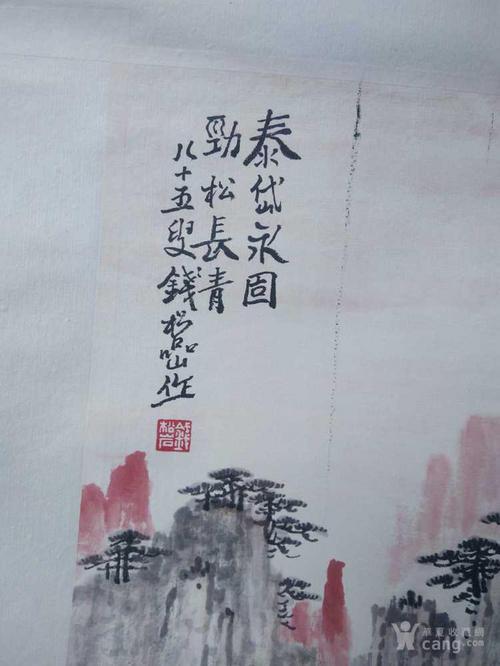 泰岱永固
勁松長青
八十五叟錢松喦作
錢松喦
華夏收藏網
cang.com